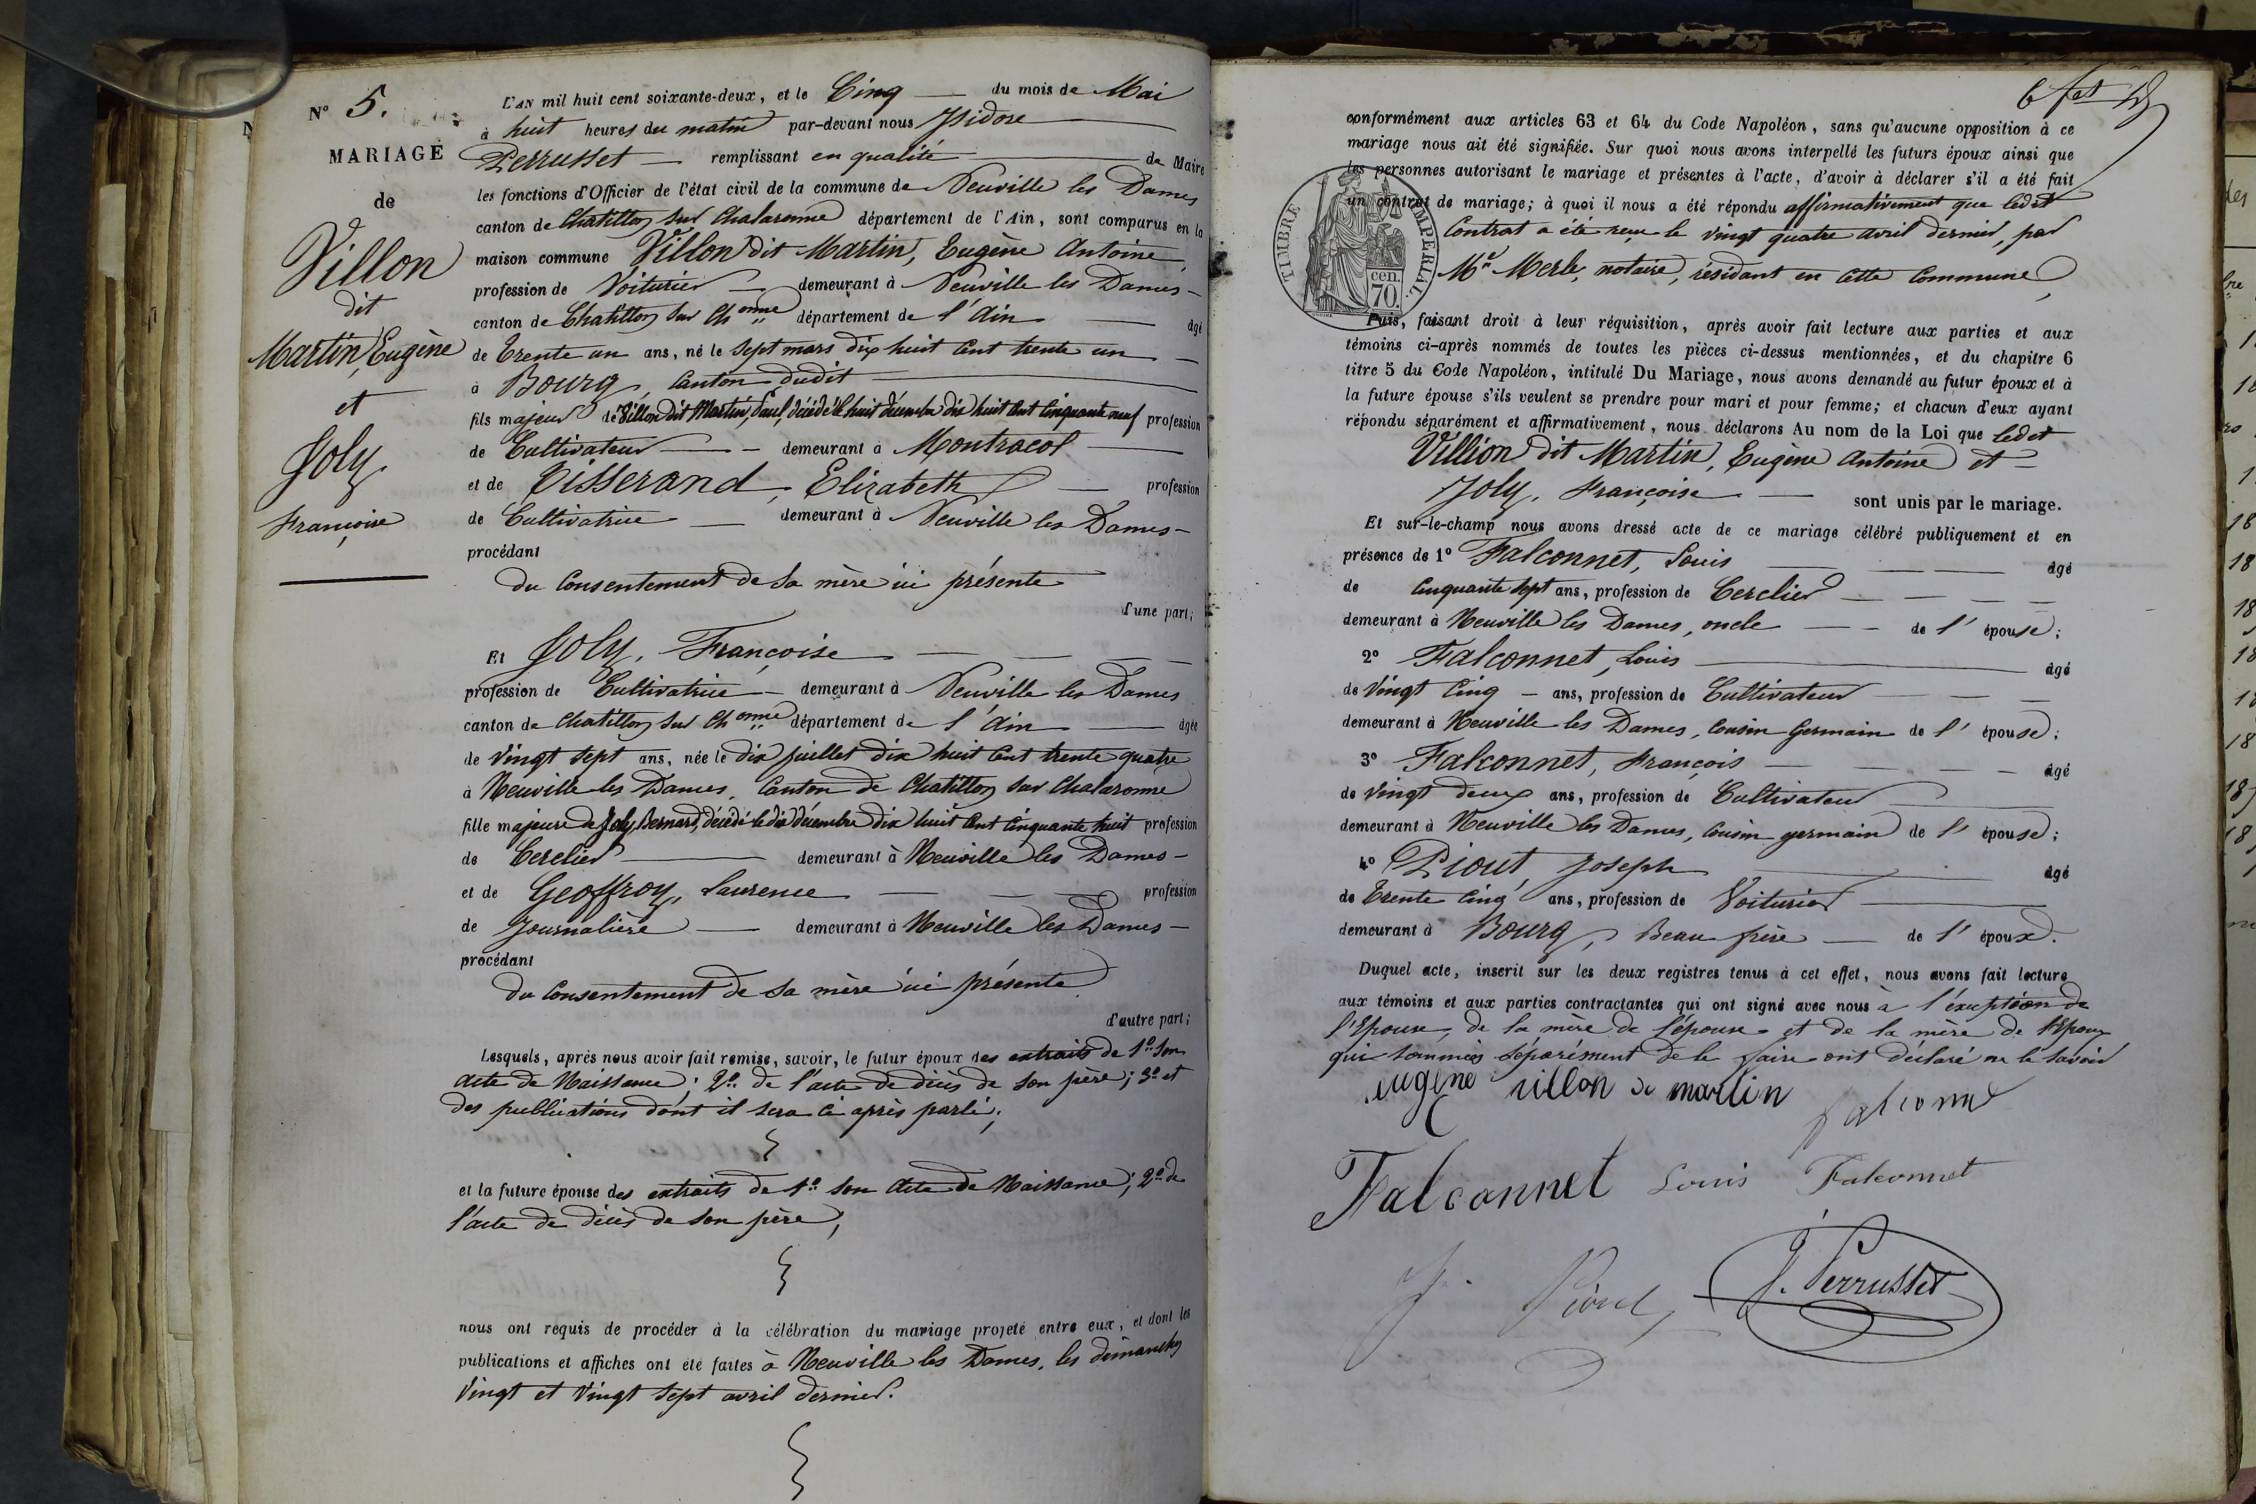 N° 5.
MARIAGE
de
Villon
dit
Martin, Eugène
et
Joly,
Françoise
L'AN mil huit cent soixante-deux, et le Cinq du mois de Mai
à huit heures du matin par-devant nous Isidore
Perrusset remplissant en qualité de Maire
les fonctions d'Officier de l'état civil de la commune de Neuville les Dames
canton de Chatillon sur Chalaronne département de l'Ain, sont comparus en la
maison commune Villon dit Martin, Eugène Antoine,
profession de Voiturier demeurant à Neuville les Dames
canton de Chatillon sur Chonne département de l'Ain âgé
de Trente un ans, né le sept mars dix huit cent trente un
à Bourg, Canton dudit
fils majeur de Villon dit Martin, Paul, décédé le huit décembre dix huit cent cinquante neuf profession
de Cultivateur demeurant à Montracol
et de Tisserand, Elizabeth profession
de Cultivatrice demeurant à Neuville les Dames
procédant
du Consentement de sa mère ici présente
d'une part;
Et Joly, Françoise
profession de Cultivatrice demeurant à Neuville les Dames
canton de Chatillon sur Chonne département de l'Ain âgée
de Vingt sept ans, née le dix juillet dix huit cent trente quatre
à Neuville les Dames, Canton de Chatillon sur Chalaronne
fille majeure de Joly, Bernard, décédé le dix décembre dix huit cent cinquante huit profession
de Cerclier demeurant à Neuville les Dames
et de Geoffroy, Laurence profession
de Journalière demeurant à Neuville les Dames
procédant
du Consentement de sa mère ici présente
d'autre part;
Lesquels, après nous avoir fait remise, savoir, le futur époux des extraits de 1° Son
acte de Naissance; 2° de l'acte de décès de son père; 3° et
des publications dont il sera ci après parlé;
et la future épouse des extraits de 1° son acte de Naissance; 2° de
l'acte de décès de son père;
nous ont requis de procéder à la célébration du mariage projeté entre eux, et dont les
publications et affiches ont été faites à Neuville les Dames, les dimanches
Vingt et Vingt sept avril dernier.
conformément aux articles 63 et 64 du Code Napoléon, sans qu'aucune opposition à ce
mariage nous ait été signifiée. Sur quoi nous avons interpellé les futurs époux ainsi que
les personnes autorisant le mariage et présentes à l'acte, d'avoir à déclarer s'il a été fait
un contrat de mariage; à quoi il nous a été répondu affirmativement que ledit
Contrat a été reçu le vingt quatre avril dernier, par
Me Merle, notaire, résidant en cette Commune,
TIMBRE IMPERIAL.
cen.
70.
Puis, faisant droit à leur réquisition, après avoir fait lecture aux parties et aux
témoins ci-après nommés de toutes les pièces ci-dessus mentionnées, et du chapitre 6
titre 5 du Code Napoléon, intitulé Du Mariage, nous avons demandé au futur époux et à
la future épouse s'ils veulent se prendre pour mari et pour femme; et chacun d'eux ayant
répondu séparément et affirmativement, nous déclarons Au nom de la Loi que ledit
Villion dit Martin, Eugène Antoine et
Joly, Françoise sont unis par le mariage.
Et sur-le-champ nous avons dressé acte de ce mariage célébré publiquement et en
présence de 1° Falconnet, Louis âgé
de cinquante sept ans, profession de Cerclier
demeurant à Neuville les Dames, oncle de l'épouse;
2° Falconnet, Louis âgé
de Vingt Cinq ans, profession de Cultivateur
demeurant à Neuville les Dames, Cousin Germain de l'épouse;
3° Falconnet, François âgé
de vingt deux ans, profession de Cultivateur
demeurant à Neuville les Dames, Cousin germain de l'épouse;
4° Piout, Joseph âgé
de Trente Cinq ans, profession de Voiturier
demeurant à Bourg, Beau frère de l'époux.
Duquel acte, inscrit sur les deux registres tenus à cet effet, nous avons fait lecture
aux témoins et aux parties contractantes qui ont signé avec nous à l'éxception de
l'Epouse, de la mère de l'épouse et de la mère de l'Epoux
qui sommées séparément de le faire ont déclaré ne le savoir
eugène villon di martin
falconne
Falconnet Louis Falconnet
J. Piout
J. Perrusset